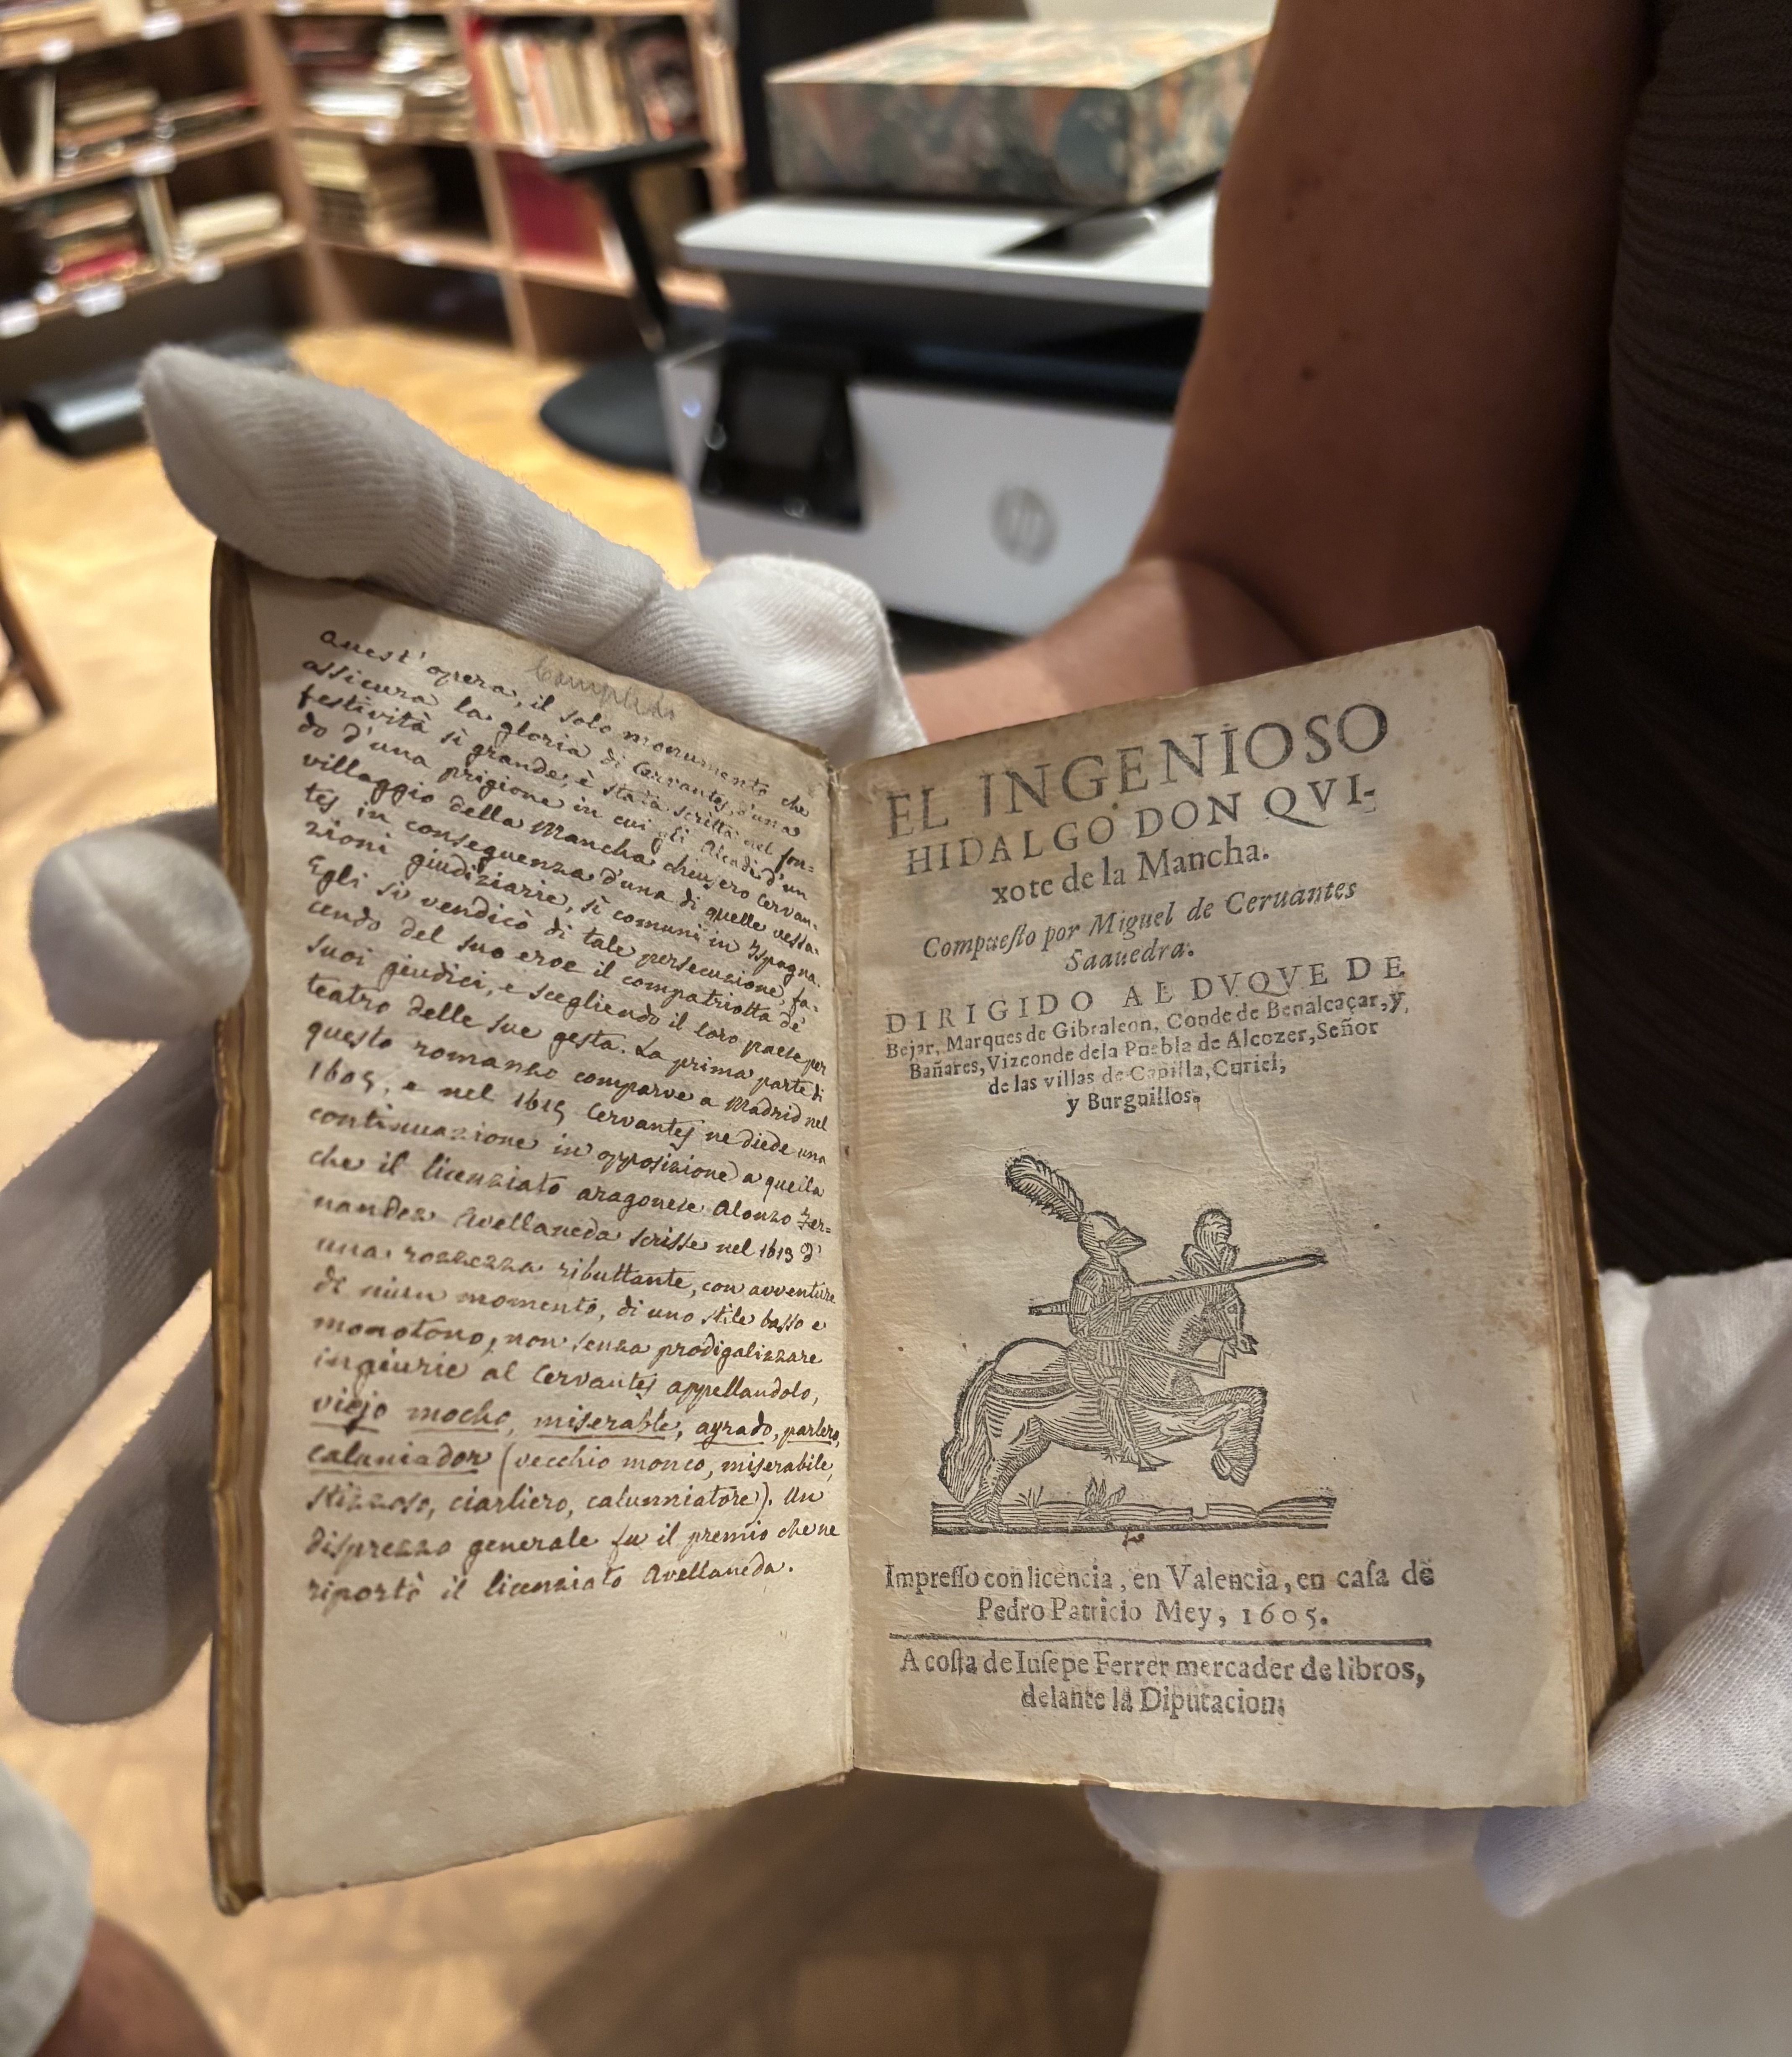 Completo
Quest'opera, il solo monumento che
assicura la gloria di Cervantes, d'una
festività sì grande, è stata scritta nel fon=
do d'una prigione in cui gli Alcadi d'un
villaggio della Mancha chiusero Cervan-
tes in conseguenza d'una di quelle vessa-
zioni giudiziarie, sì comuni in Ispagna.
Egli si vendicò di tale persecuzione, fa-
cendo del suo eroe il compatriotta de'
suoi giudici, e scegliendo il loro paese per
teatro delle sue gesta. La prima parte di
questo romanzo comparve a Madrid nel
1605, e nel 1615 Cervantes ne diede una
continuazione in opposizione a quella
che il licenziato aragonese Alonzo Fer=
nandez Avellaneda scrisse nel 1613 d'
una rozzezza ributtante, con avventure
di niun momento, di uno stile basso e
monotono, non senza prodigalizzare
ingiurie al Cervantes appellandolo,
viejo mocho, miserable, ayrado, parlero,
caluniador (vecchio monco, miserabile,
stizzoso, ciarliero, calunniatore). Un
disprezzo generale fu il premio che ne
riportò il licenziato Avellaneda.
EL INGENIOSO
HIDALGO DON QVI-
xote de la Mancha.
Compuesto por Miguel de Ceruantes
Saauedra.
DIRIGIDO AL DVQVE DE
Bejar, Marques de Gibraleon, Conde de Benalcaçar, y
Bañares, Vizconde dela Puebla de Alcozer, Señor
de las villas de Capilla, Curiel,
y Burguillos.
Impresso con licencia, en Valencia, en casa de
Pedro Patricio Mey, 1605.
A costa de Iusepe Ferrer mercader de libros,
delante la Diputacion.
hp